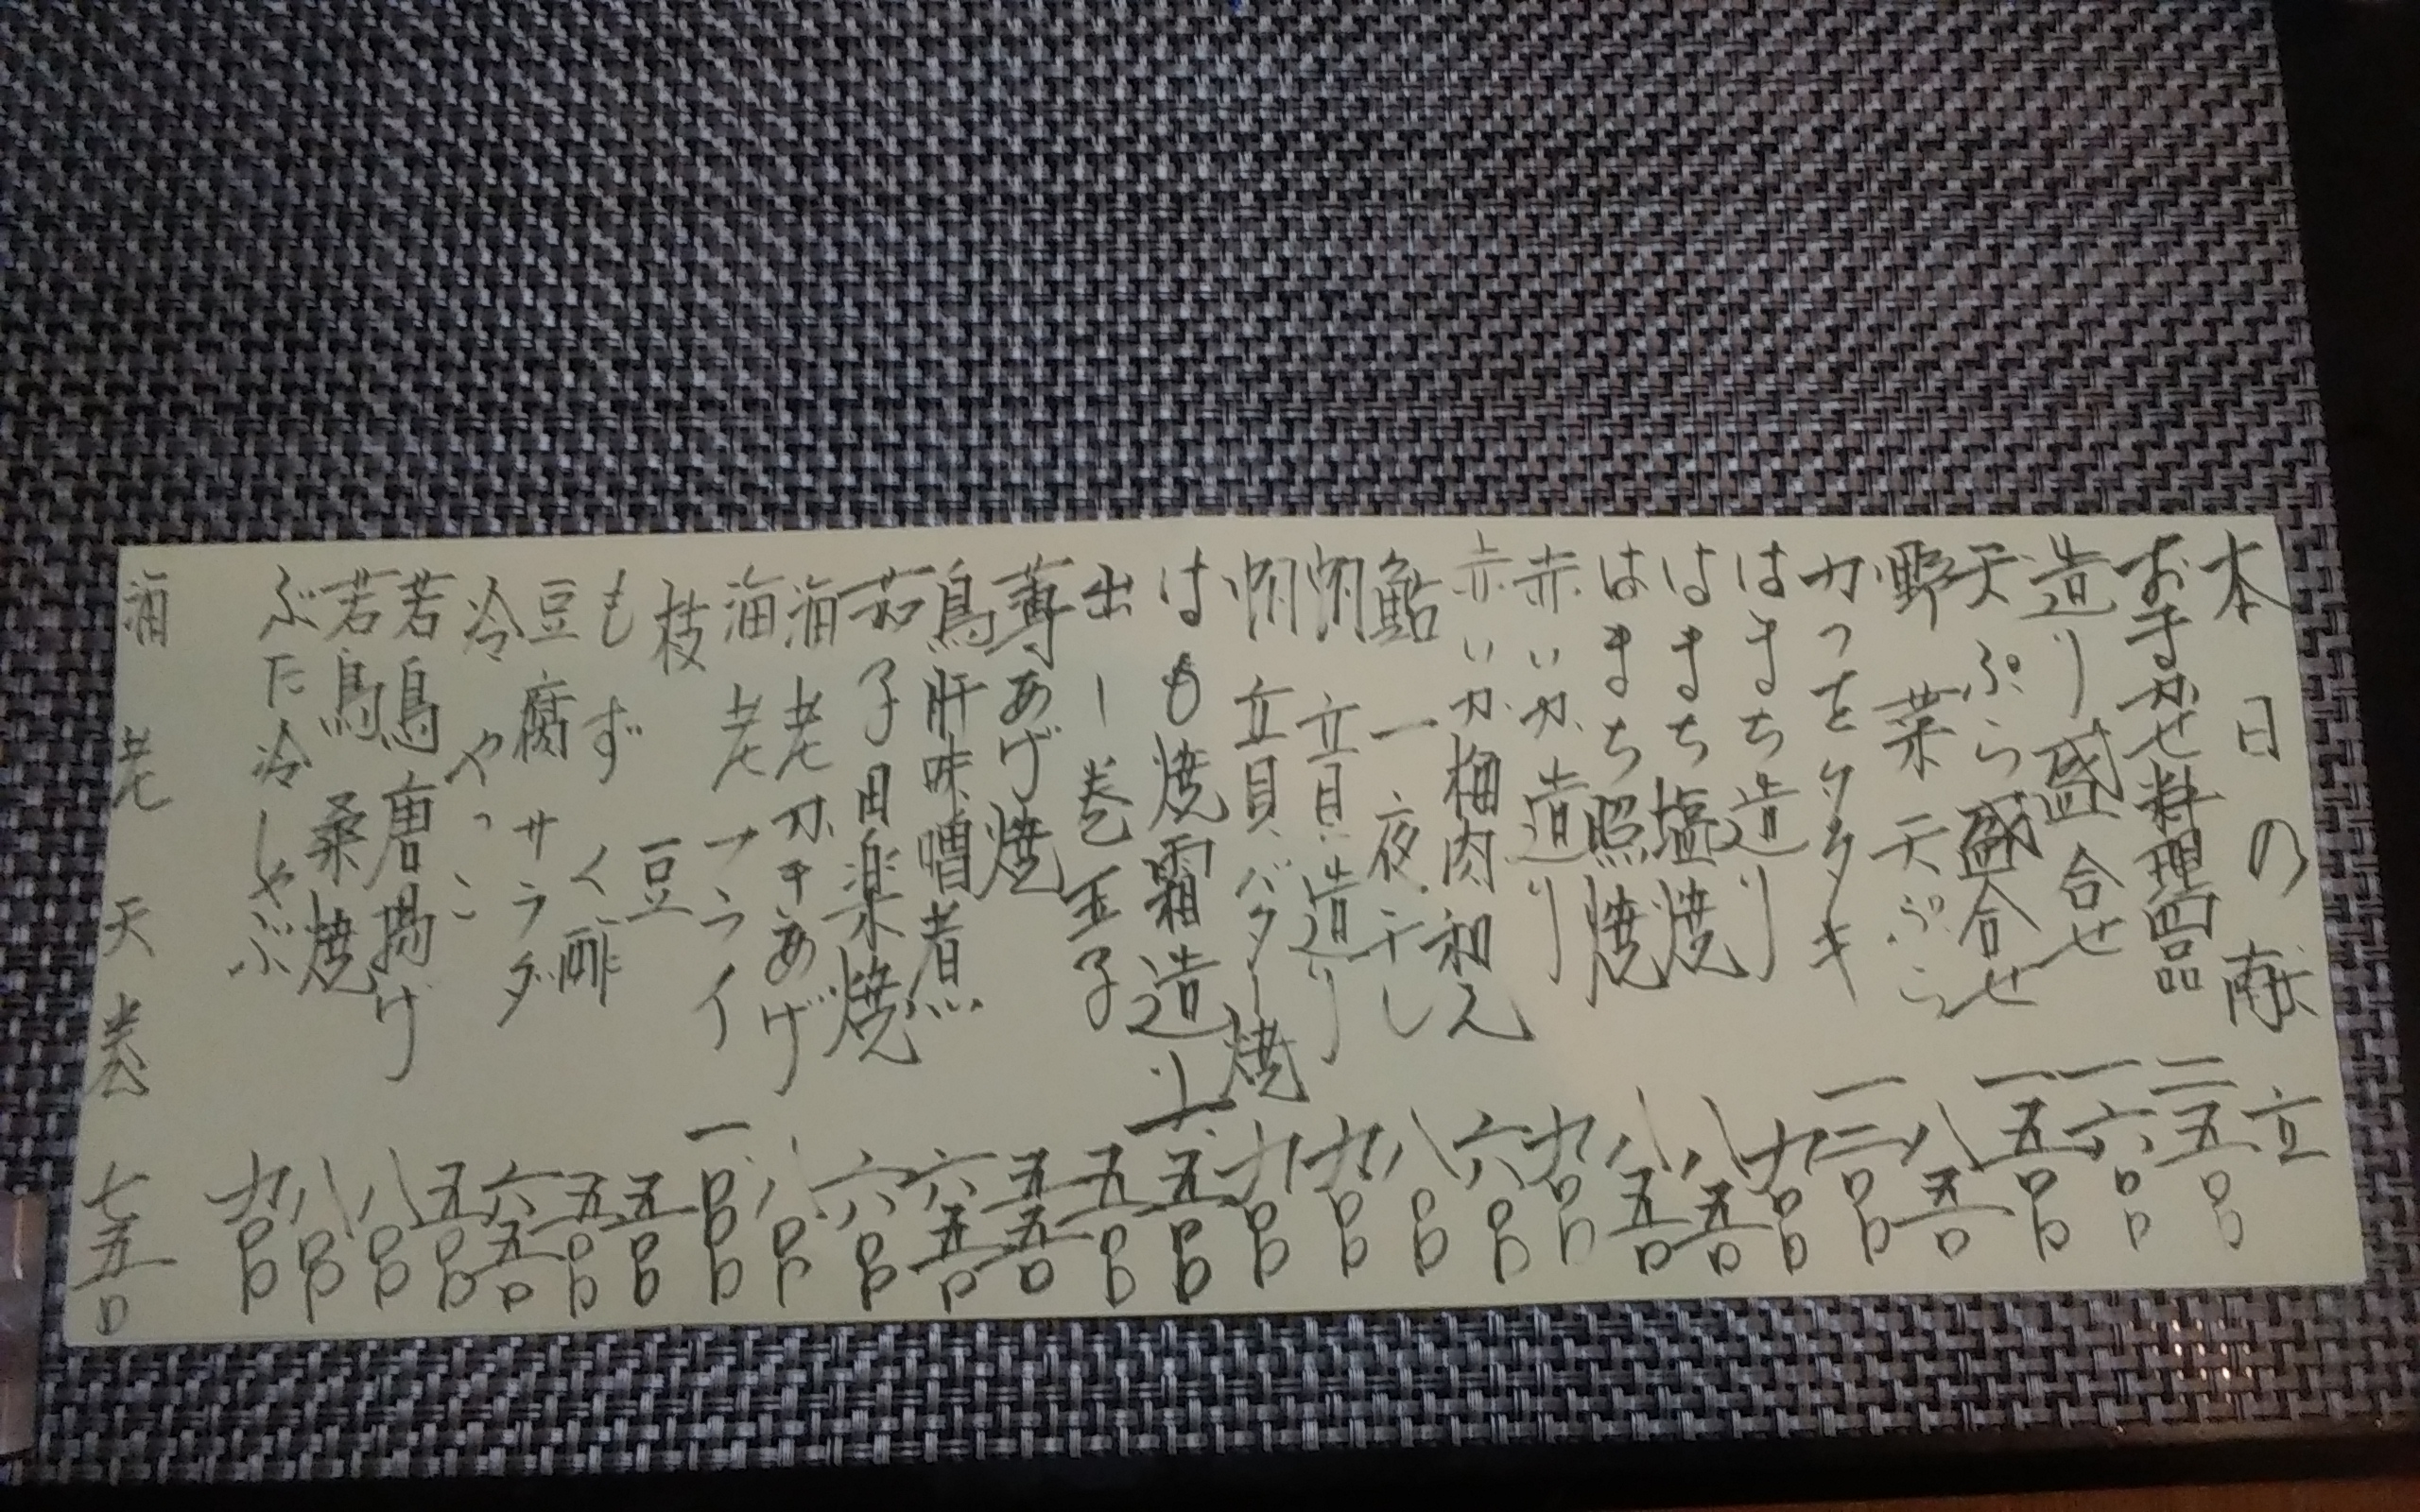 本日の献立
おまかせ料理四品 二五〇〇
造り盛合せ 一六〇〇
天ぷら盛合せ 一五〇〇
野菜天ぷら 八五〇
カツをタタキ 一二〇〇
はまち造り 九〇〇
はまち塩焼 八五〇
はまち照焼 八五〇
赤いか造り 九〇〇
赤いか梅肉和え 六〇〇
鮎一夜干し 八〇〇
帆立貝造り 九〇〇
帆立貝バター焼 九〇〇
はも焼霜造り 一五〇〇
出し巻玉子 五〇〇
薄あげ焼 五五〇
鳥肝味噌煮 六五〇
茄子田楽焼 六〇〇
海老かきあげ 八〇〇
海老フライ 一〇〇〇
枝豆 五〇〇
もずく酢 五〇〇
豆腐サラダ 六五〇
冷やっこ 五〇〇
若鳥唐揚げ 八〇〇
若鳥桑焼 八〇〇
ぶた冷しゃぶ 九〇〇
海老天巻 七五〇